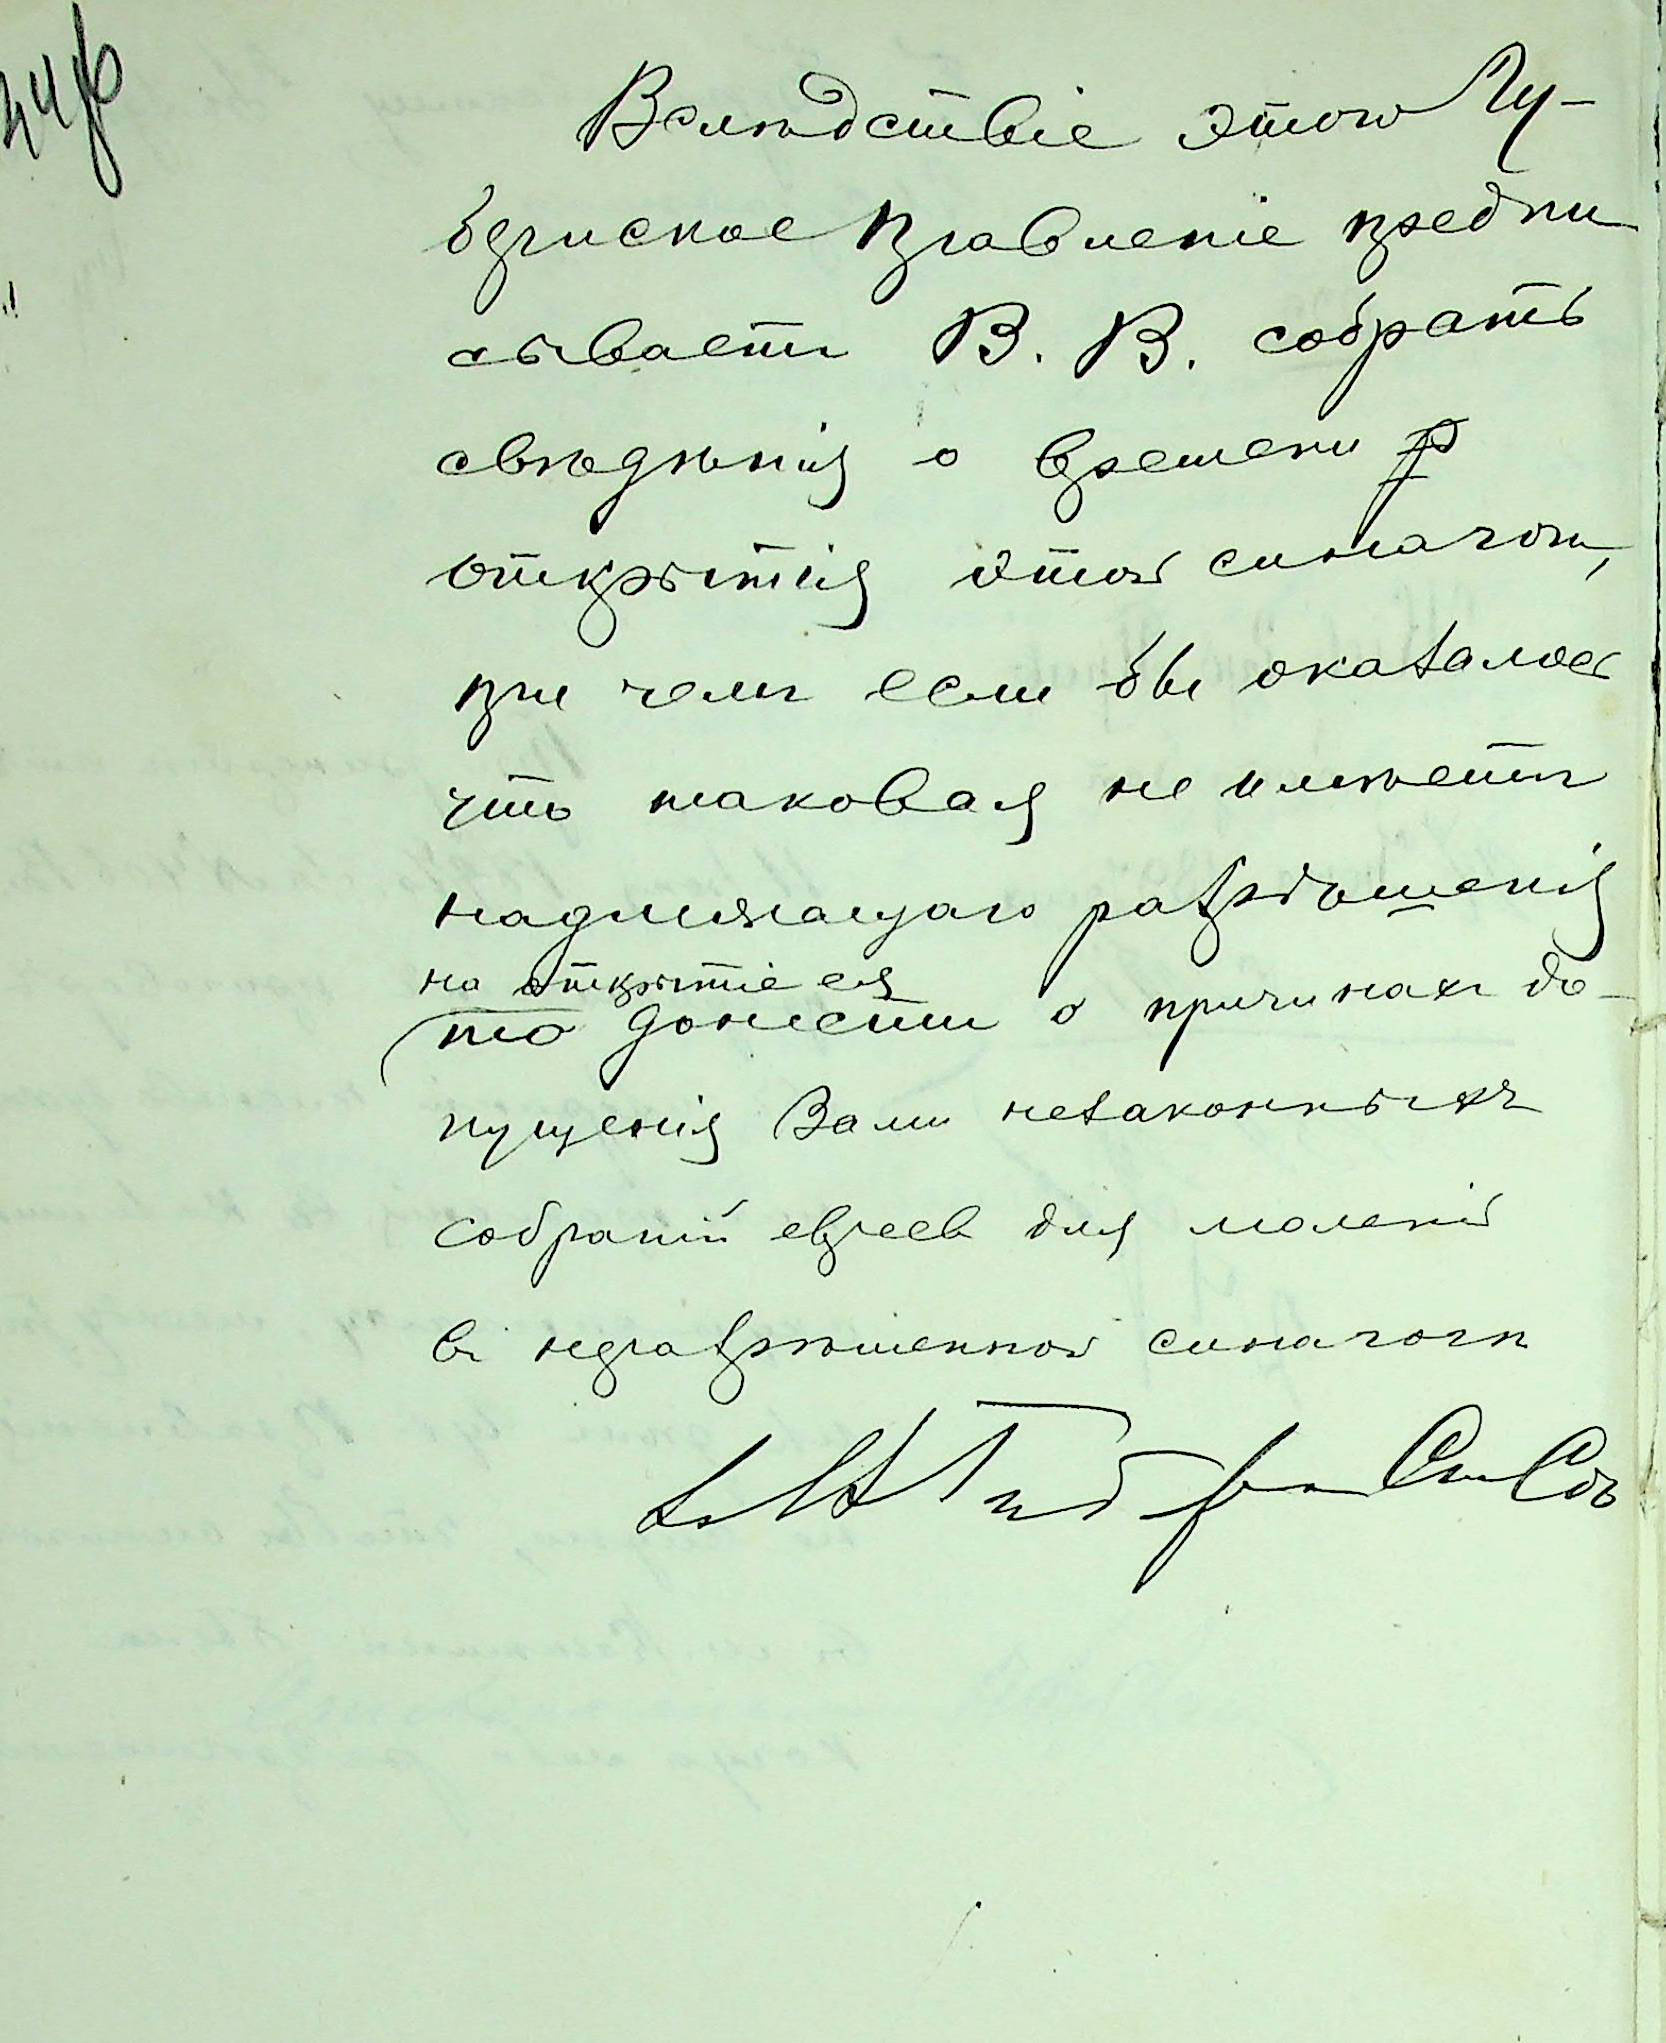 Вслѣдствіе этого Гу-
бернское Правленіе предпи
сываетъ В. В. собрать
свѣдѣнія о времени
открытія этой синагоги,
при чемъ если бы оказалось
что таковая не имѣетъ
надлежащаго разрѣшенія
на открытіе ея
то донести о причинахъ до-
пущенія Вами незаконныхъ
собраній евреевъ для моленій
въ неразрѣшенной синагогѣ